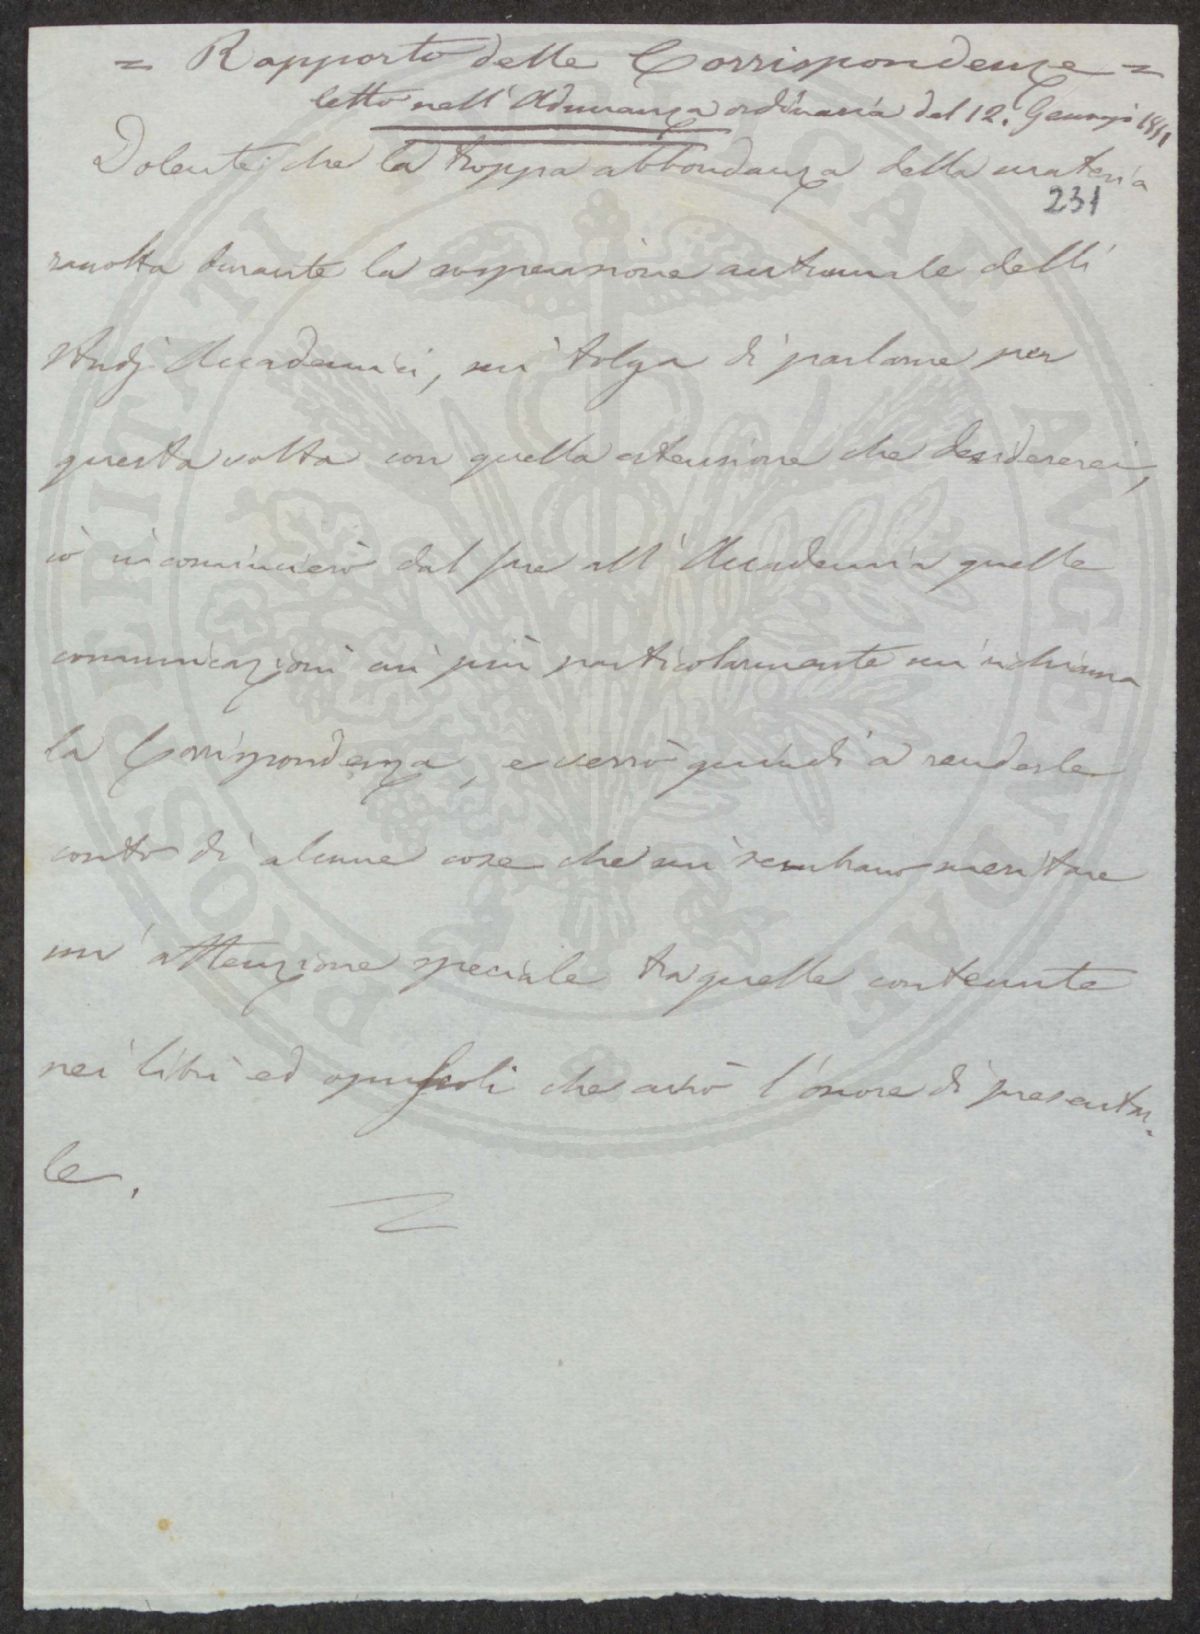 = Rapporto delle Corrispondenze =
letto nell'Adunanza ordinaria del 12. Gennajo
Dolente che la troppa abbondanza della materia
231
raccolta durante la sospensione autunnale delli
studj Accademici, mi tolga di parlarne per
questa volta con quella estensione che desidererei,
io incomincierò dal fare all'Accademia quelle
comunicazioni cui più particolarmente mi richiama
la Corrispondenza, e verrò quindi a renderle
conto di alcune cose che mi sembrano meritare
un'attenzione speciale tra quelle contenute
nei libri ed opuscoli che avrò l'onore di presentar-
le.
PROSPERITATI PUBLICAE AUGENDAE